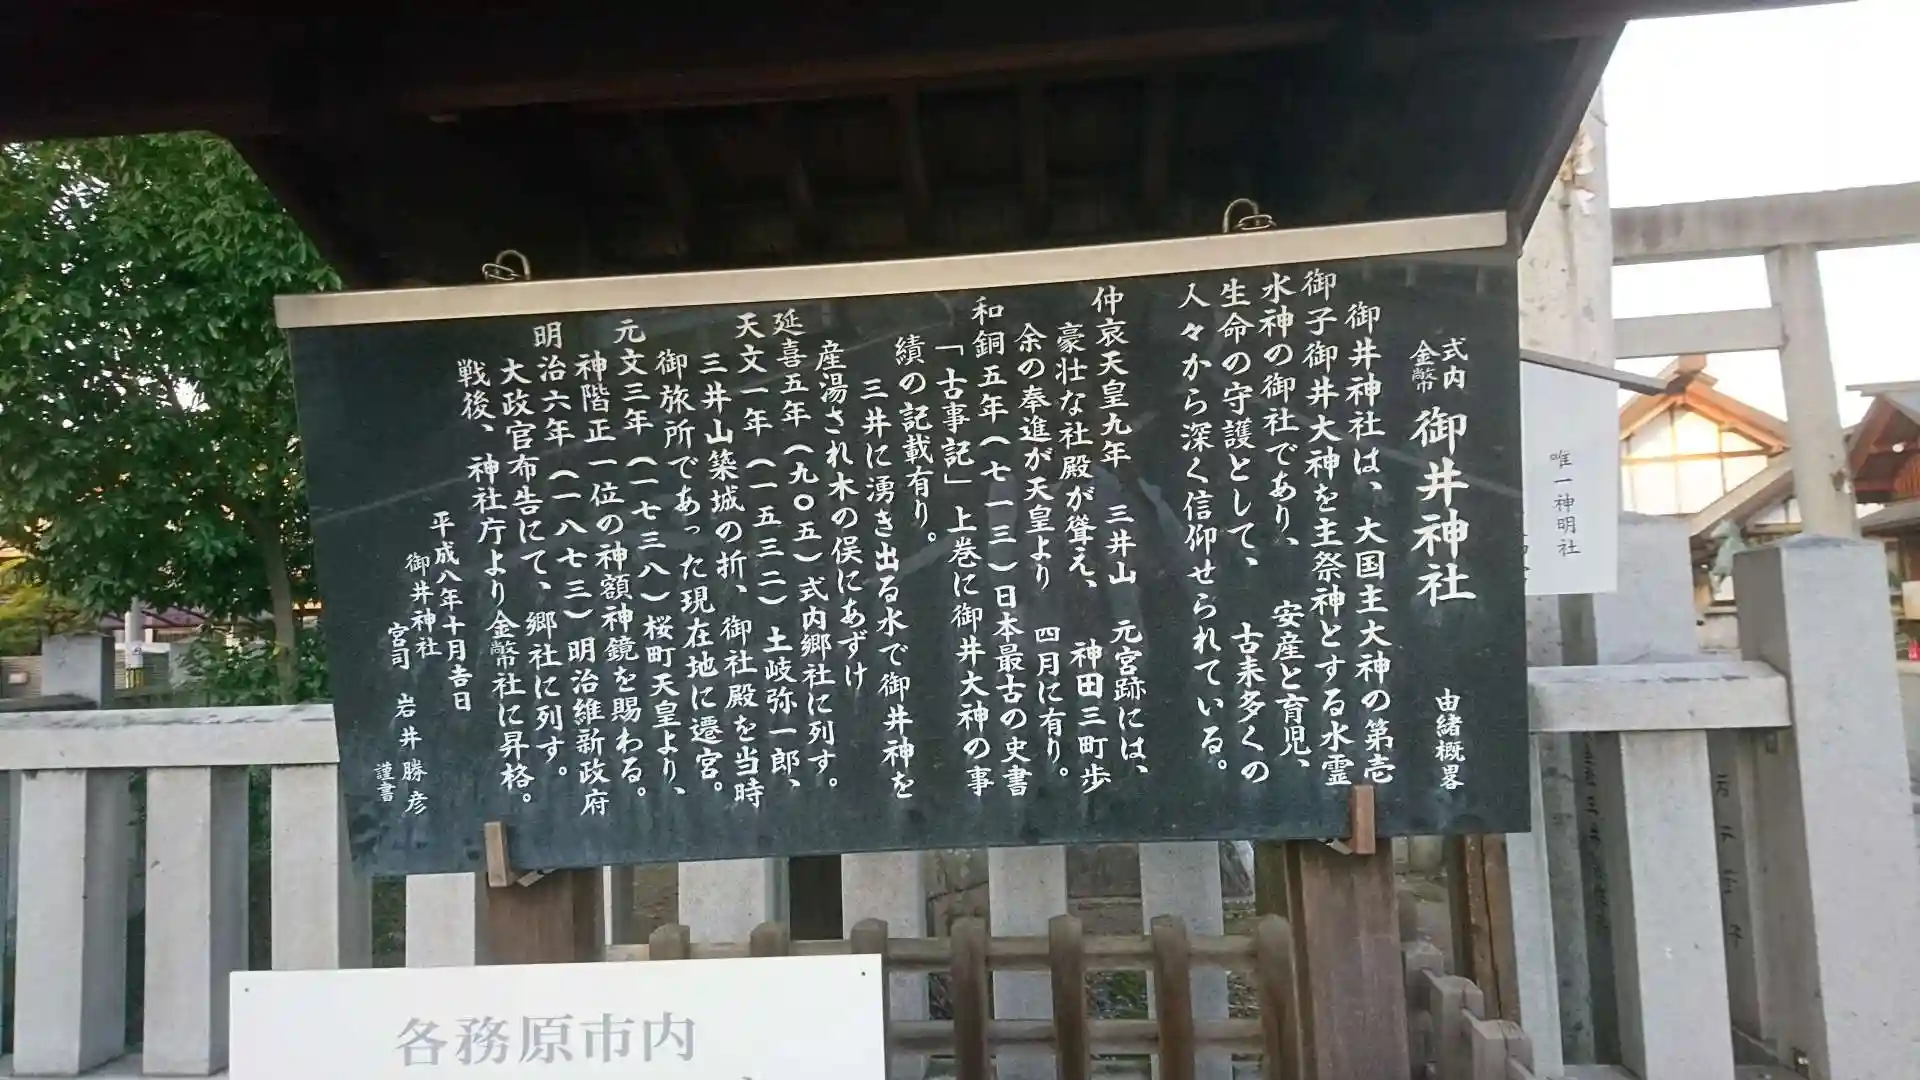 式内
金幣
御井神社
由緒概畧
御井神社は、大国主大神の第壱
御子御井大神を主祭神とする水霊
水神の御社であり、安産と育児、
生命の守護として、古来多くの
人々から深く信仰せられている。
仲哀天皇九年 三井山 元宮跡には、
豪壮な社殿が聳え、神田三町歩
余の奉進が天皇より 四月に有り。
和銅五年(七一三)日本最古の史書
「古事記」上巻に御井大神の事
績の記載有り。
三井に湧き出る水で御井神を
産湯され木の俣にあずけ
延喜五年(九〇五)式内郷社に列す。
天文一年(一五三二)土岐弥一郎、
三井山築城の折、御社殿を当時
御旅所であった現在地に遷宮。
元文三年(一七三八)桜町天皇より、
神階正一位の神額神鏡を賜わる。
明治六年(一八七三)明治維新政府
大政官布告にて、郷社に列す。
戦後、神社庁より金幣社に昇格。
平成八年十月吉日
御井神社
宮司 岩井勝彦
謹書
唯一神明社
各務原市内